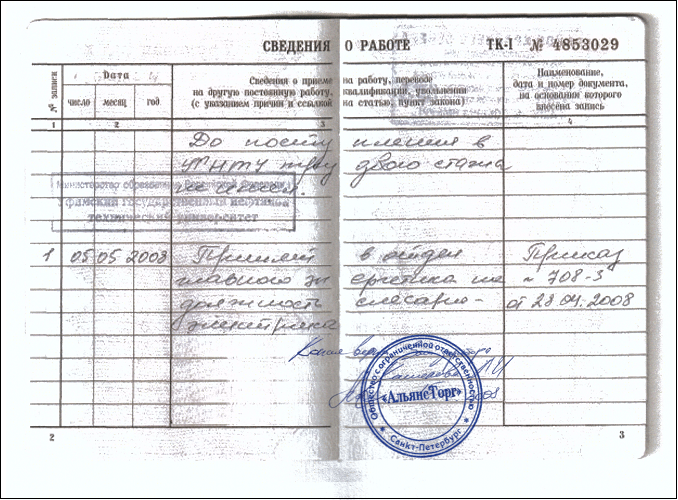 СВЕДЕНИЯ О РАБОТЕ ТК-I № 4853029
№ записи
Дата
число месяц год
Сведения о приеме на работу, переводе
на другую постоянную работу, квалификации, увольнении
(с указанием причин и ссылкой на статью, пункт закона)
Наименование,
дата и номер документа,
на основании которого
внесена запись
1 2 3 4
До поступления в
УГНТУ трудового стажа
не имеет.
Министерство образования Российской Федерации
Уфимский государственный нефтяной
технический университет
1 05 05 2008 Принят в отдел Приказ
главного энергетика на № 708-3
должность слесаря- от 28.04.2008
электрика
Копия верна
Общество с ограниченной ответственностью
«АльянсТорг»
Санкт-Петербург
2 3